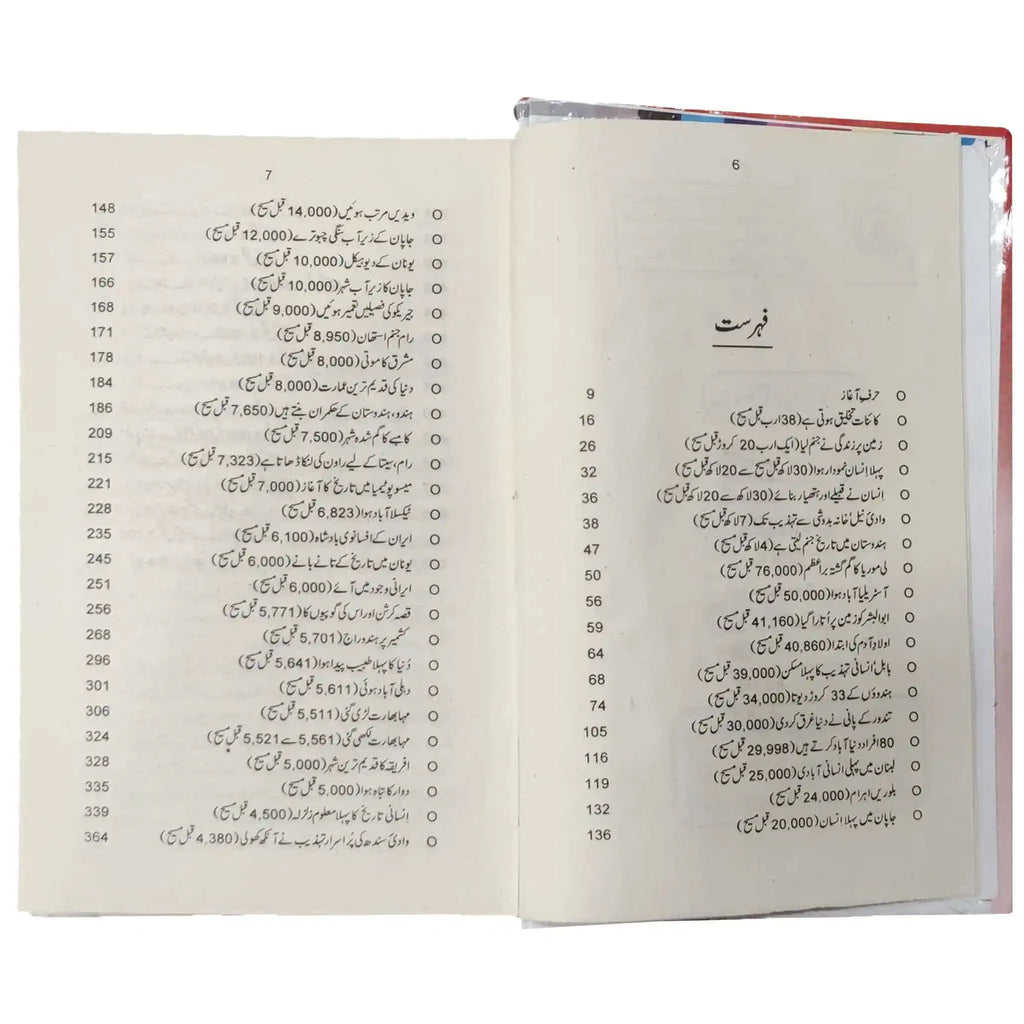 6
فہرست
حرف آغاز 9
کائنات تخلیق ہوتی ہے (38 ارب قبل مسیح) 16
زمین پر زندگی نے جنم لیا (ایک ارب 20 کروڑ قبل مسیح) 26
پہلا اِنسان نمودار ہوا (30 لاکھ قبل مسیح سے 20 لاکھ قبل مسیح) 32
اِنسان نے قبیلے اور ہتھیار بنائے (30 لاکھ سے 20 لاکھ قبل مسیح) 36
وادیٔ نیل؛ خانہ بدوشی سے تہذیب تک (7 لاکھ قبل مسیح) 38
ہندوستان میں تاریخ جنم لیتی ہے (4 لاکھ قبل مسیح) 47
لی موریا کا گم گشتہ براعظم (76,000 قبل مسیح) 50
آسٹریلیا آباد ہوا (50,000 قبل مسیح) 56
ابوالبشر کو زمین پر اُتارا گیا (41,160 قبل مسیح) 59
اولادِ آدم کی ابتدا (40,860 قبل مسیح) 64
بابل اُنسانی تہذیب کا پہلا مسکن (39,000 قبل مسیح) 68
ہندوؤں کے 33 کروڑ دیوتا (34,000 قبل مسیح) 74
تندور کے پانی نے دنیا غرق کر دی (30,000 قبل مسیح) 105
80 افراد دنیا آباد کرتے ہیں (29,998 قبل مسیح) 116
لبنان میں پہلی انسانی آبادی (25,000 قبل مسیح) 119
بلوریں اہرام (24,000 قبل مسیح) 132
جاپان میں پہلا انسان (20,000 قبل مسیح) 136
7
ویدیں مرتب ہوئیں (14,000 قبل مسیح) 148
جاپان کے زیرِ آب سنگی چبوترے (12,000 قبل مسیح) 155
یونان کے دیو ہیکل (10,000 قبل مسیح) 157
جاپان کا زیرِ آب شہر (10,000 قبل مسیح) 166
جیریکو کی فصیلیں تعمیر ہوئیں (9,000 قبل مسیح) 168
رام جنم استھان (8,950 قبل مسیح) 171
مشرق کا موتی (8,000 قبل مسیح) 178
دنیا کی قدیم ترین عمارت (8,000 قبل مسیح) 184
ہندو، ہندوستان کے حکمران بنتے ہیں (7,650 قبل مسیح) 186
کا گم شدہ شہر (7,500 قبل مسیح) 209
رام، سیتا کے لیے راون کی لنکا ڈھاتا ہے (7,323 قبل مسیح) 215
میسوپوٹیمیا میں تاریخ کا آغاز (7,000 قبل مسیح) 221
ٹیکسلا آباد ہوا (6,823 قبل مسیح) 228
ایران کے افسانوی بادشاہ (6,100 قبل مسیح) 235
یونان میں تاریخ کے تانے بانے (6,000 قبل مسیح) 245
ایرانی وجود میں آئے (6,000 قبل مسیح) 251
قصہ کرشن اور اس کی گوپیوں کا (5,771 قبل مسیح) 256
کشمیر پر ہندو راج (5,701 قبل مسیح) 268
دُنیا کا پہلا طبیب پیدا ہوا (5,641 قبل مسیح) 296
دہلی آباد ہوئی (5,611 قبل مسیح) 301
مہابھارت لڑی گئی (5,511 قبل مسیح) 306
مہابھارت لکھی گئی (5,561 سے 5,521 قبل مسیح) 324
افریقہ کا قدیم ترین شہر (5,000 قبل مسیح) 328
دوارکا تباہ ہوا (5,000 قبل مسیح) 335
اِنسانی تاریخ کا پہلا معلوم زلزلہ (4,500 قبل مسیح) 339
وادیٔ سندھ کی پُر اسرار تہذیب نے آنکھ کھولی (4,380 قبل مسیح) 364